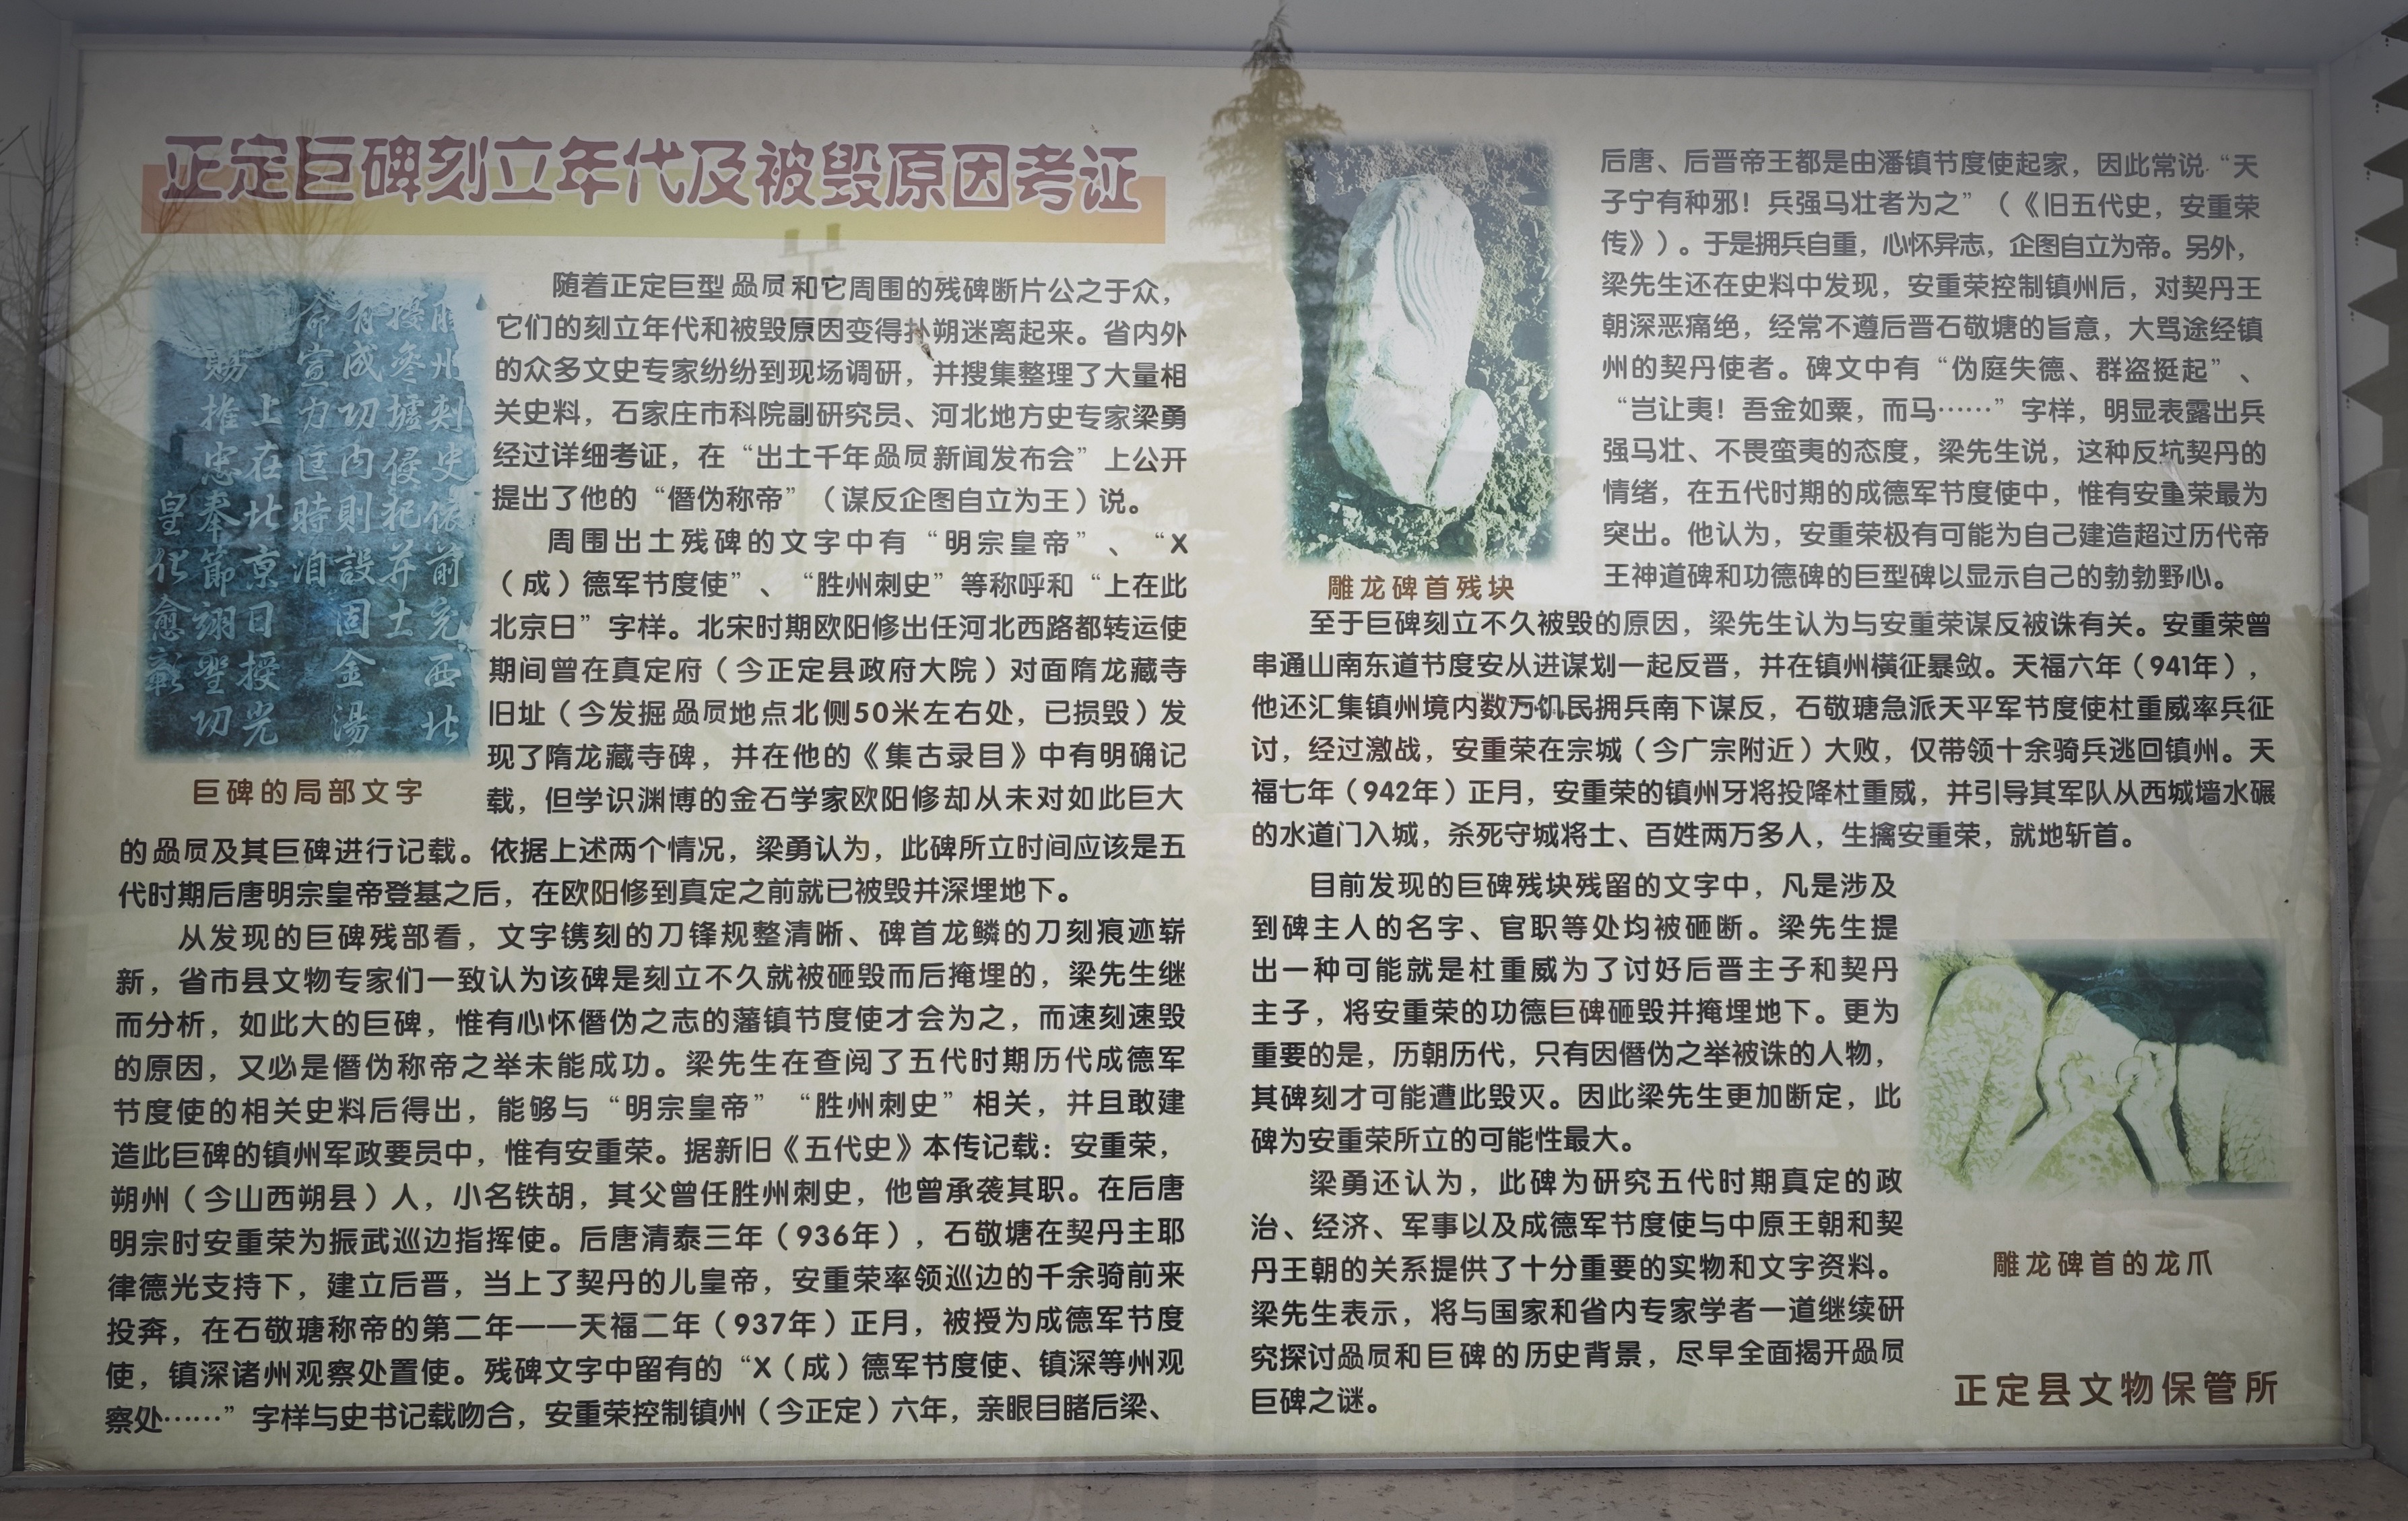 正定巨碑刻立年代及被毁原因考证
州刺史依前充西北
接參墟侵犯并土
有成功内則設固金湯
命宣力匡時洎
上在北京日授光
賜推忠奉節翊聖功
皇化愈彰
巨碑的局部文字
随着正定巨型赑屃和它周围的残碑断片公之于众，
它们的刻立年代和被毁原因变得扑朔迷离起来。省内外
的众多文史专家纷纷到现场调研，并搜集整理了大量相
关史料，石家庄市科院副研究员、河北地方史专家梁勇
经过详细考证，在“出土千年赑屃新闻发布会”上公开
提出了他的“僭伪称帝”（谋反企图自立为王）说。
周围出土残碑的文字中有“明宗皇帝”、“X
（成）德军节度使”、“胜州刺史”等称呼和“上在此
北京日”字样。北宋时期欧阳修出任河北西路都转运使
期间曾在真定府（今正定县政府大院）对面隋龙藏寺
旧址（今发掘赑屃地点北侧50米左右处，已损毁）发
现了隋龙藏寺碑，并在他的《集古录目》中有明确记
载，但学识渊博的金石学家欧阳修却从未对如此巨大
的赑屃及其巨碑进行记载。依据上述两个情况，梁勇认为，此碑所立时间应该是五
代时期后唐明宗皇帝登基之后，在欧阳修到真定之前就已被毁并深埋地下。
从发现的巨碑残部看，文字镌刻的刀锋规整清晰、碑首龙鳞的刀刻痕迹崭
新，省市县文物专家们一致认为该碑是刻立不久就被砸毁而后掩埋的，梁先生继
而分析，如此大的巨碑，惟有心怀僭伪之志的藩镇节度使才会为之，而速刻速毁
的原因，又必是僭伪称帝之举未能成功。梁先生在查阅了五代时期历代成德军
节度使的相关史料后得出，能够与“明宗皇帝”“胜州刺史”相关，并且敢建
造此巨碑的镇州军政要员中，惟有安重荣。据新旧《五代史》本传记载：安重荣，
朔州（今山西朔县）人，小名铁胡，其父曾任胜州刺史，他曾承袭其职。在后唐
明宗时安重荣为振武巡边指挥使。后唐清泰三年（936年），石敬塘在契丹主耶
律德光支持下，建立后晋，当上了契丹的儿皇帝，安重荣率领巡边的千余骑前来
投奔，在石敬塘称帝的第二年——天福二年（937年）正月，被授为成德军节度
使，镇深诸州观察处置使。残碑文字中留有的“X（成）德军节度使、镇深等州观
察处……”字样与史书记载吻合，安重荣控制镇州（今正定）六年，亲眼目睹后梁、
雕龙碑首残块
后唐、后晋帝王都是由潘镇节度使起家，因此常说“天
子宁有种邪！兵强马壮者为之”（《旧五代史，安重荣
传》）。于是拥兵自重，心怀异志，企图自立为帝。另外，
梁先生还在史料中发现，安重荣控制镇州后，对契丹王
朝深恶痛绝，经常不遵后晋石敬塘的旨意，大骂途经镇
州的契丹使者。碑文中有“伪庭失德、群盗挺起”、
“岂让夷！吾金如粟，而马……”字样，明显表露出兵
强马壮、不畏蛮夷的态度，梁先生说，这种反抗契丹的
情绪，在五代时期的成德军节度使中，惟有安重荣最为
突出。他认为，安重荣极有可能为自己建造超过历代帝
王神道碑和功德碑的巨型碑以显示自己的勃勃野心。
至于巨碑刻立不久被毁的原因，梁先生认为与安重荣谋反被诛有关。安重荣曾
串通山南东道节度安从进谋划一起反晋，并在镇州横征暴敛。天福六年（941年），
他还汇集镇州境内数万饥民拥兵南下谋反，石敬塘急派天平军节度使杜重威率兵征
讨，经过激战，安重荣在宗城（今广宗附近）大败，仅带领十余骑兵逃回镇州。天
福七年（942年）正月，安重荣的镇州牙将投降杜重威，并引导其军队从西城墙水碾
的水道门入城，杀死守城将士、百姓两万多人，生擒安重荣，就地斩首。
目前发现的巨碑残块残留的文字中，凡是涉及
到碑主人的名字、官职等处均被砸断。梁先生提
出一种可能就是杜重威为了讨好后晋主子和契丹
主子，将安重荣的功德巨碑砸毁并掩埋地下。更为
重要的是，历朝历代，只有因僭伪之举被诛的人物，
其碑刻才可能遭此毁灭。因此梁先生更加断定，此
碑为安重荣所立的可能性最大。
梁勇还认为，此碑为研究五代时期真定的政
治、经济、军事以及成德军节度使与中原王朝和契
丹王朝的关系提供了十分重要的实物和文字资料。
梁先生表示，将与国家和省内专家学者一道继续研
究探讨赑屃和巨碑的历史背景，尽早全面揭开赑屃
巨碑之谜。
雕龙碑首的龙爪
正定县文物保管所